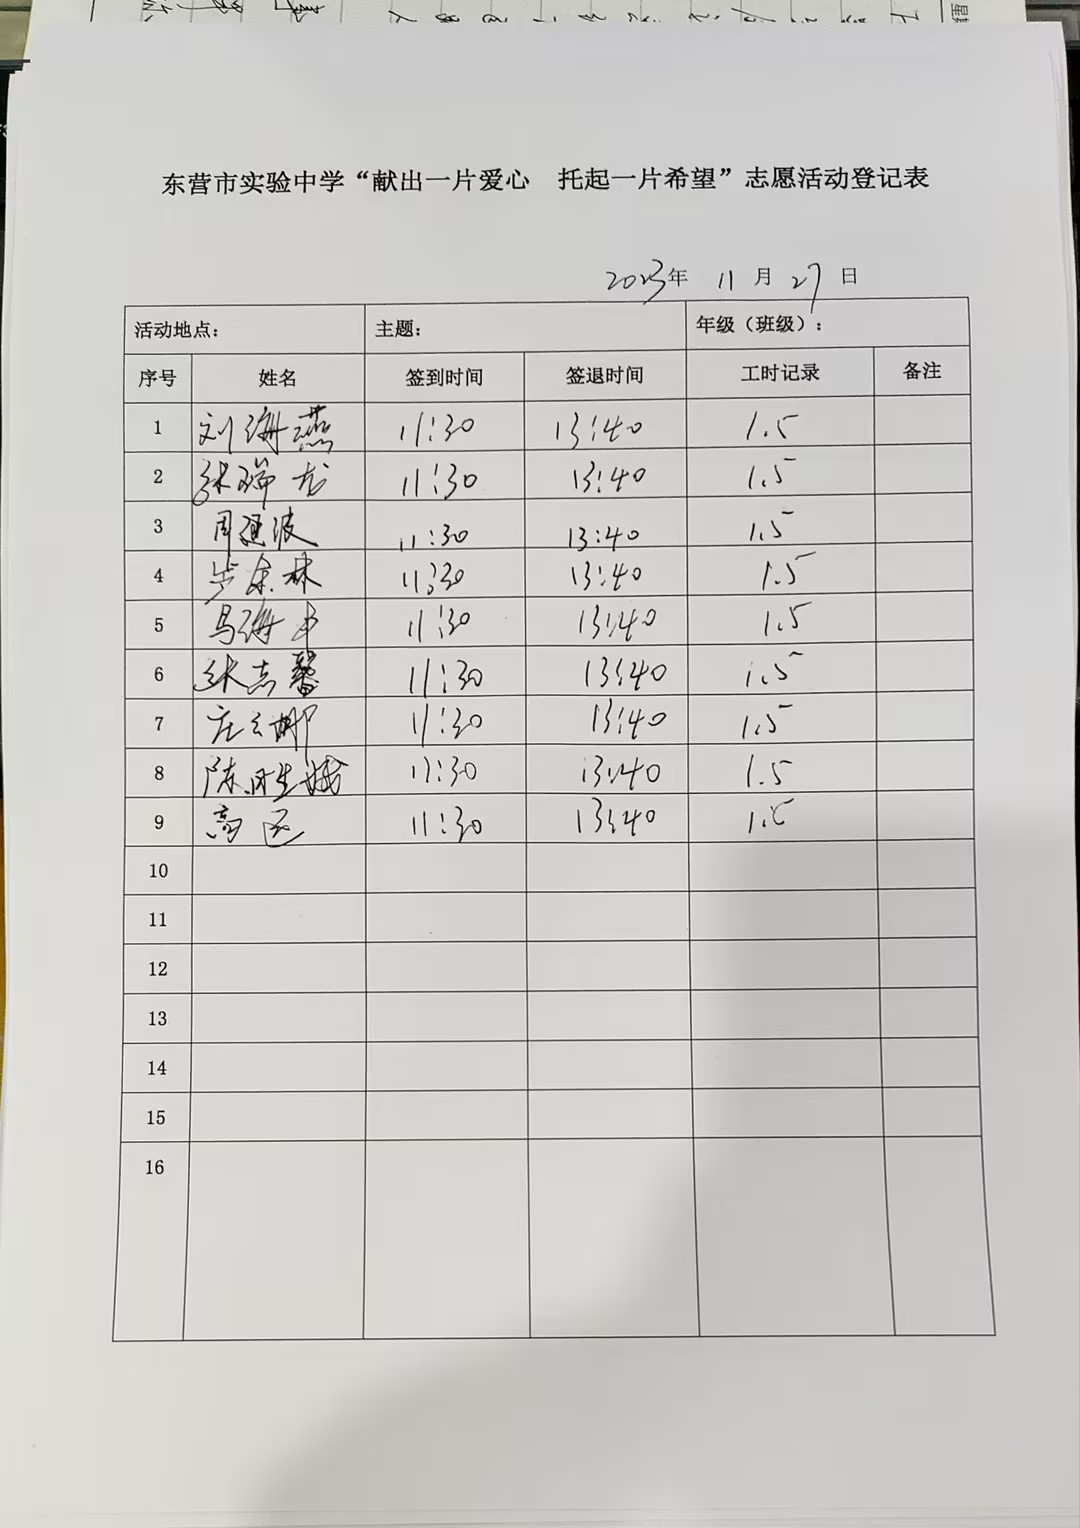 东营市实验中学“献出一片爱心 托起一片希望”志愿活动登记表
2023年 11 月 27 日
活动地点： 主题： 年级（班级）：
序号 姓名 签到时间 签退时间 工时记录 备注
1 刘海燕 11:30 13:40 1.5
2 张瑞龙 11:30 13:40 1.5
3 周建波 11:30 13:40 1.5
4 林 11:30 13:40 1.5
5 马海丰 11:30 13:40 1.5
6 张志馨 11:30 13:40 1.5
7 庄云娜 11:30 13:40 1.5
8 陈 11:30 13:40 1.5
9 高 11:30 13:40 1.5
10
11
12
13
14
15
16